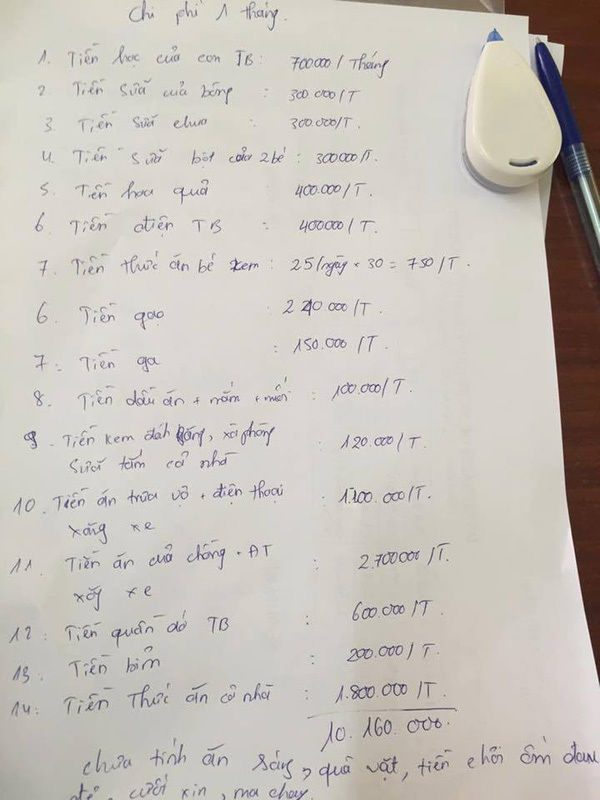 Chi phí 1 tháng.
1. Tiền học của con TB: 700000/Tháng
2 Tiền Sữa của bống : 300.000/T
3. Tiền Sữa chua : 300.000/T.
4. Tiền Sữa bột của 2 bé : 300000/T.
5. Tiền hoa quả : 400.000/T.
6 Tiền điện TB : 400000/T.
7. Tiền thức ăn bé kem : 25/ngày × 30 = 750/T.
6. Tiền gạo : 240.000/T.
7: Tiền ga : 150.000/T.
8. Tiền dầu ăn + mắm + muối : 100.000/T.
9. Tiền kem đánh răng, xà phòng : 120.000/T.
Sữa tắm cả nhà
10. Tiền ăn trưa vợ + điện thoại : 1.100.000/T.
xăng xe
11. Tiền ăn của chồng + ĐT : 2.700000/T.
xăng xe
12: Tiền quần áo TB : 600.000/T.
13. Tiền bỉm : 200.000/T.
14: Tiền Thức ăn cả nhà : 1.800.000/T.
10.160.000.
chưa tính ăn sáng, quà vặt, tiền chơi ốm đau
đẻ, cưới xin, ma chay.